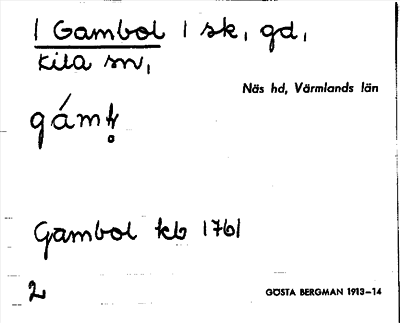 1 Gambol 1 sk, gd,
Kila sn,
Näs hd, Värmlands län
Gambol kb 1761
2
GÖSTA BERGMAN 1913–14